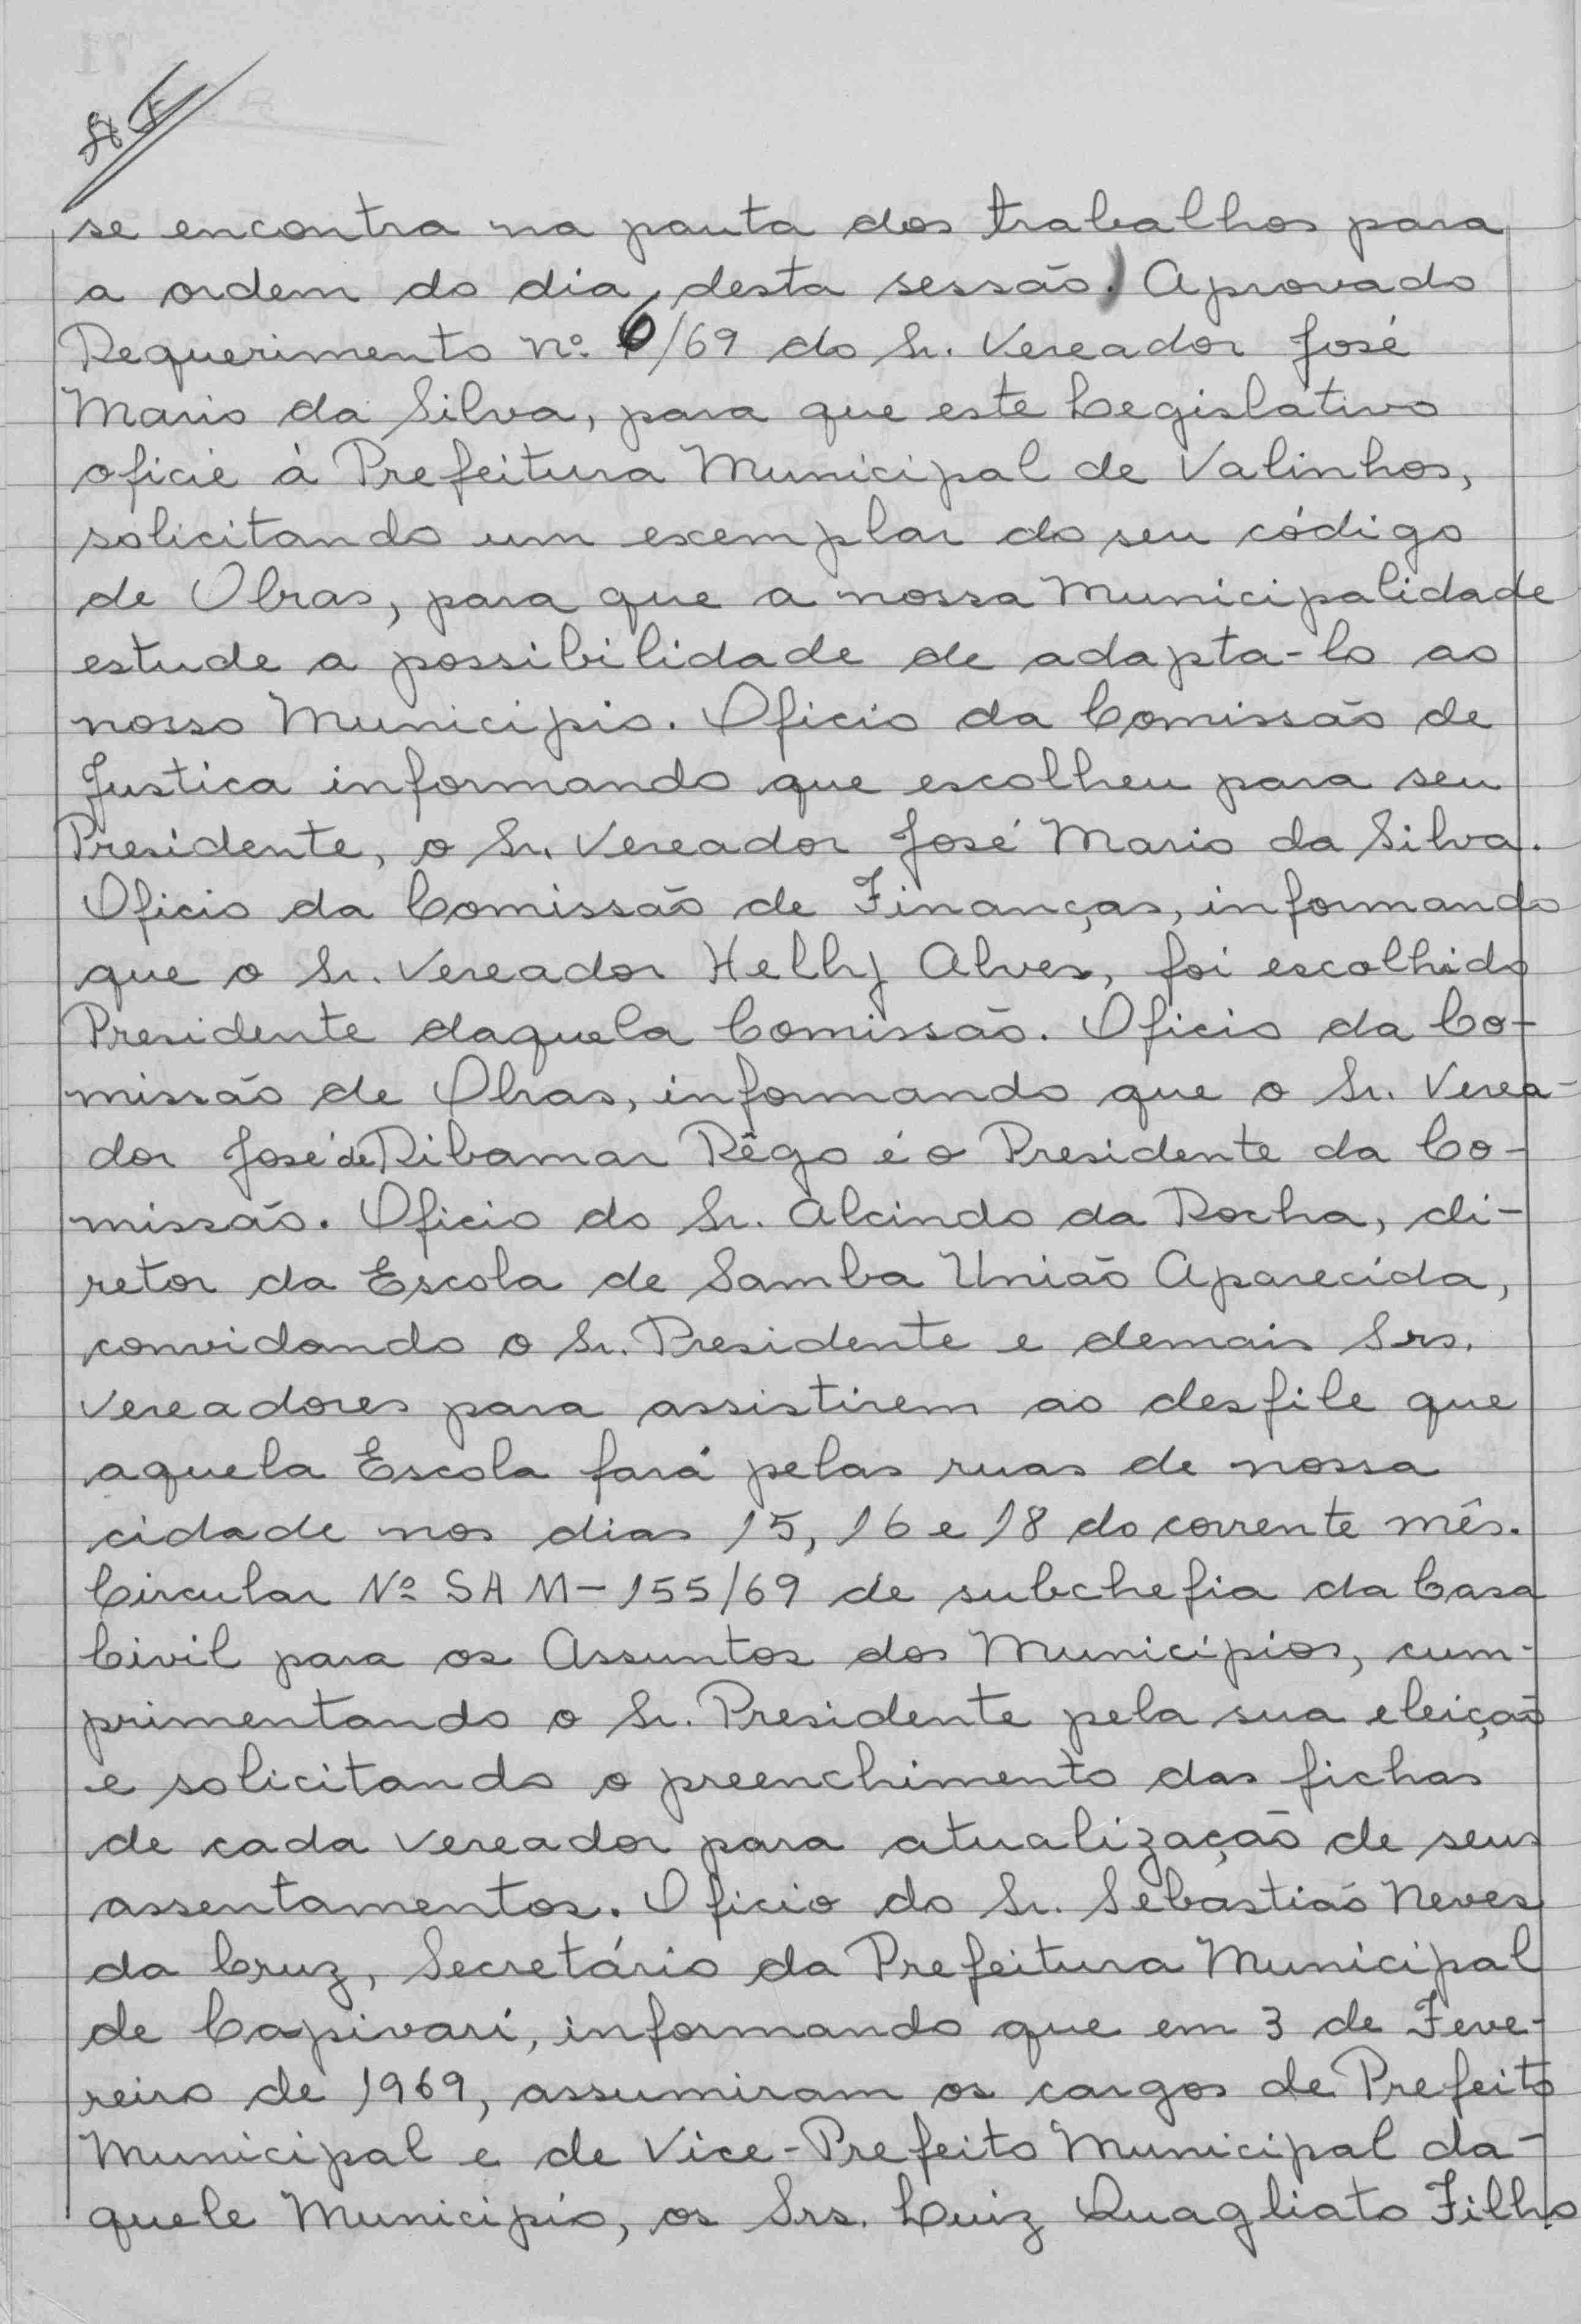 se encontra na pauta dos trabalhos para
a ordem do dia, desta sessão. Aprovado
Requerimento nº 6/69 do Sr. Vereador José
Mario da Silva, para que este Legislativo
oficie à Prefeitura Municipal de Valinhos,
solicitando um exemplar do seu código
de Obras, para que a nossa Municipalidade
estude a possibilidade de adapta-lo ao
nosso Municipio. Oficio da Comissão de
Justica informando que escolheu para seu
Presidente, o Sr. Vereador José Mario da Silva.
Oficio da Comissão de Finanças, informando
que o Sr. Vereador Helly Alves, foi escolhido
Presidente daquela Comissão. Oficio da Co-
missão de Obras, informando que o Sr. Verea-
dor José de Ribamar Rêgo é o Presidente da Co-
missão. Oficio do Sr. Alcindo da Rocha, di-
retor da Escola de Samba União Aparecida,
convidando o Sr. Presidente e demais Srs.
Vereadores para assistirem ao desfile que
aquela Escola fará pelas ruas de nossa
cidade nos dias 15, 16 e 18 do corrente mês.
Circular Nº SAM-155/69 de subchefia da Casa
Civil para os Assuntos dos Municípios, cum-
primentando o Sr. Presidente pela sua eleição
e solicitando o preenchimento das fichas
de cada vereador para atualização de seus
assentamentos. Oficio do Sr. Sebastião Neves
da Cruz, Secretário da Prefeitura Municipal
de Capivarí, informando que em 3 de Feve-
reiro de 1969, assumiram os cargos de Prefeito
Municipal e de Vice-Prefeito Municipal da-
quele Municipio, os Srs. Luiz Quagliato Filho